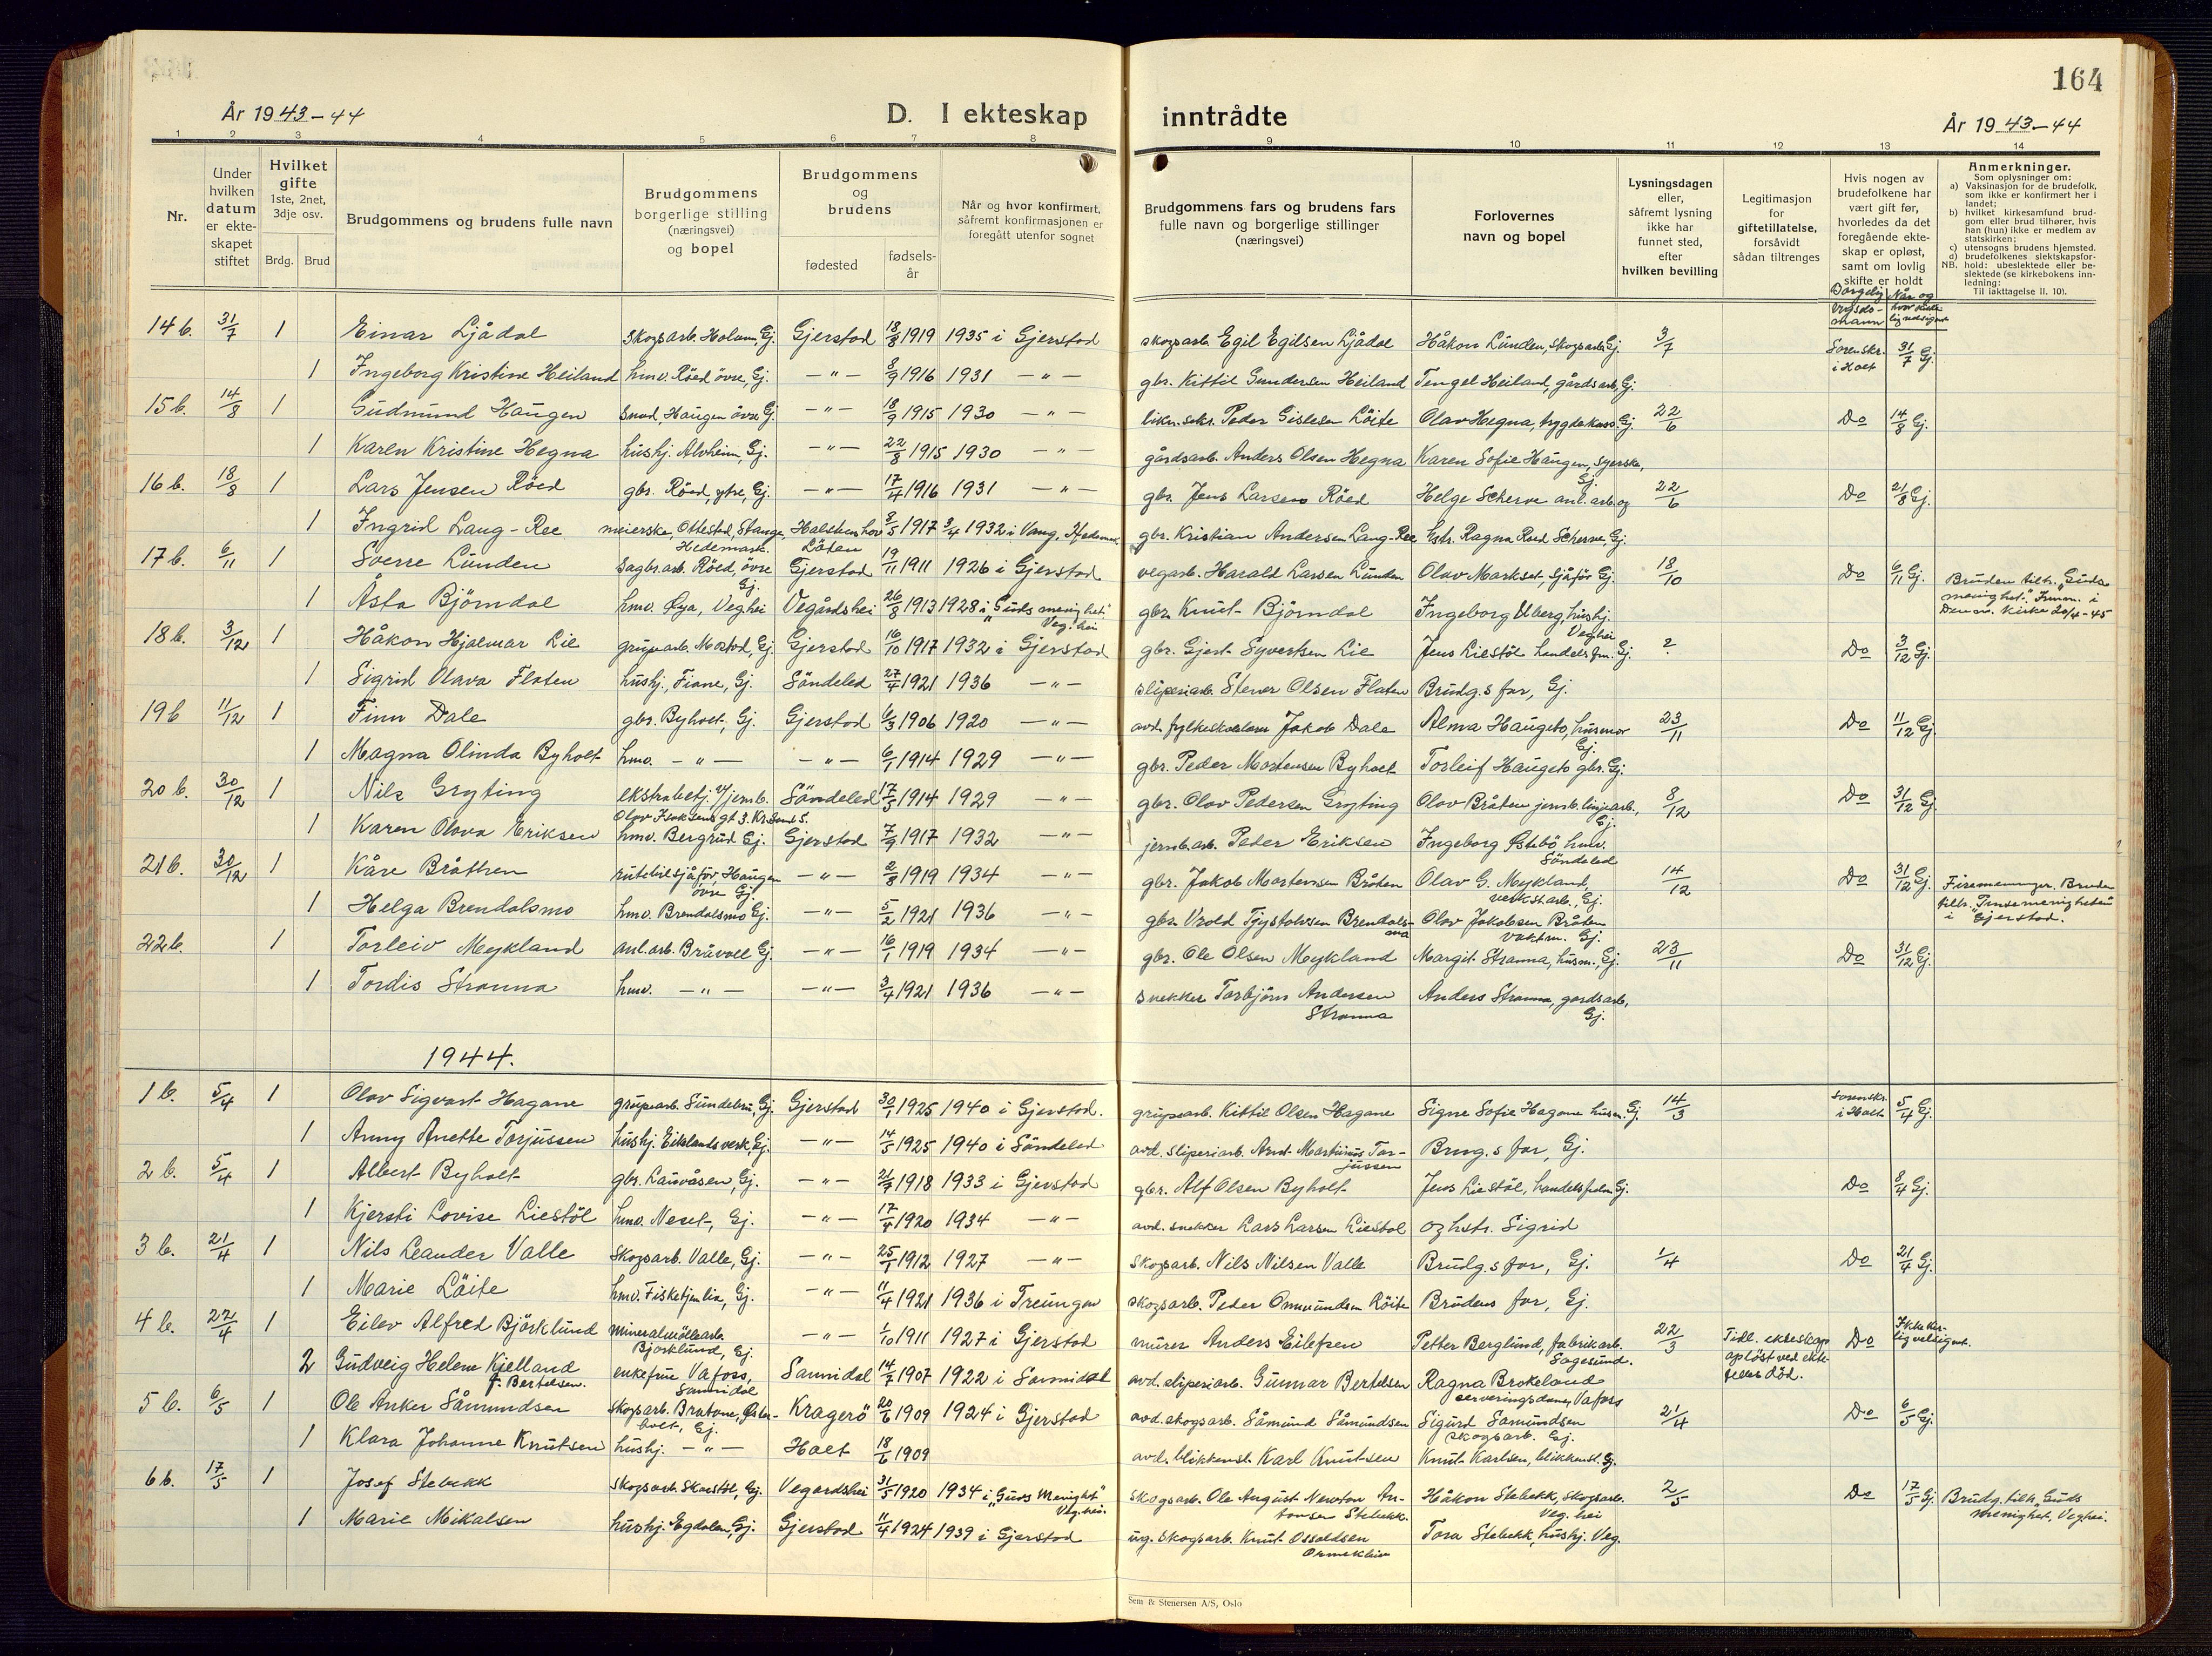 164
År 1943-44
D. I ekteskap inntrådte
År 1943-44
1 2 3 4 5 6 7 8 9 10 11 12 13 14
Nr.
Under hvilken datum er ekteskapet stiftet
Hvilket gifte 1ste, 2net, 3dje osv.
Brdg. Brud
Brudgommens og brudens fulle navn
Brudgommens borgerlige stilling (næringsvei) og bopel
Brudgommens og brudens
fødested
fødselsår
Når og hvor konfirmert, såfremt konfirmasjonen er foregått utenfor sognet
Brudgommens fars og brudens fars fulle navn og borgerlige stillinger (næringsvei)
Forlovernes navn og bopel
Lysningsdagen eller, såfremt lysning ikke har funnet sted, efter hvilken bevilling
Legitimasjon for giftetillatelse, forsåvidt sådan tiltrenges
Hvis nogen av brudefolkene har vært gift før, hvorledes da det foregående ekteskap er opløst, samt om lovlig skifte er holdt
Anmerkninger.
Som oplysninger om:
a) Vaksinasjon for de brudefolk, som ikke er konfirmert her i landet;
b) hvilket kirkesamfund brudgom eller brud tilhører, hvis han (hun) ikke er medlem av statskirken;
c) utensogns brudens hjemsted.
d) brudefolkenes slektskapsforhold: ubeslektede eller beslektede (se kirkebokens innledning:
NB. Til iakttagelse II. 10).
14 b. 31/7 1 Einar Ljådal skogsarb. Holum, Gj. Gjerstad 18/3 1919 1935 i Gjerstad skogsarb. Egil Egilsen Ljådal Håkon Lunden, skogsarb. Gj. 3/7 Sorenskr. i Holt 31/7 Gj.
1 Ingeborg Kristine Heiland hmv. Røed övre, Gj. -"- 8/9 1916 1931 -"- gbr. Kittil Gundersen Heiland Tengel Heiland, gårdsarb. Gj.
15 b. 14/8 1 Gudmund Haugen smed, Haugen övre Gj. -"- 18/9 1915 1930 -"- likn.sekr. Peder Gislesen Löite Olav Hegna, trygdekass. Gj. 22/6 Do 14/8 Gj.
1 Karen Kristine Hegna hushj. Alvheim, Gj. -"- 22/8 1915 1930 -"- gårdsarb. Anders Olsen Hegna Karen Sofie Haugen, syerske, Gj.
16 b. 18/8 1 Lars Jensen Röed gbr. Röed, ytre, Gj. -"- 17/4 1916 1931 -"- gbr. Jens Larsen Röed Helge Scherve anl. arb. og 22/6 Do 21/8 Gj.
1 Ingrid Laug-Ree meierske, Ottestad, Stange, Hedemark. Halstenshov Löten 8/5 1917 3/4 1932 i Vang, Hedemark gbr. Kristian Andersen Laug-Ree hstr. Ragna Röed Scherve, Gj.
17 b. 6/11 1 Sverre Lunden sagbr.arb. Röed, övre Gj. Gjerstad 19/11 1911 1926 i Gjerstad vegarb. Harald Larsen Lunden Olav Markset, sjåför Gj. 18/10 Do 6/11 Gj.
1 Åsta Björndal hmv. Øya, Veghei Vegårdshei 26/8 1913 1928 i "Guds menighet." Veg.hei gbr. Knut Björndal Ingeborg Ulberg, hushj. Veghei
Bruden tilh. "Guds menighet." Innm. i Den no. Kirke 20/4-45
18 b. 3/12 1 Håkon Hjalmar Lie grubearb. Mostad, Gj. Gjerstad 16/10 1917 1932 i Gjerstad gbr. Gjert Syvertsen Lie Jens Liestöl handelsfm. Gj. ? Do 3/12 Gj.
1 Sigrid Olava Flaten hushj., Fiane, Gj. Söndeled 27/4 1921 1936 -"- sliperiarb. Stener Olsen Flaten Brudg.s far, Gj.
19 b 11/12 1 Finn Dale gbr. Byholt, Gj. Gjerstad 6/3 1906 1920 -"- avd. fylkesskolelærer Jakob Dale Alma Haugeto, husmor Gj. 23/11 Do 11/12 Gj.
1 Magna Olinda Byholt hmv. -"- -"- 6/1 1914 1929 -"- gbr. Peder Mortensen Byholt Torleif Haugeto gbr. Gj.
20 b. 30/12 1 Nils Gryting ekstrabetj. v/jernb. Olav Isaksens gt 3. Kr.sand S. Söndeled 17/5 1914 1929 -"- gbr. Olav Pedersen Gryting Olav Bråten jernb. linjearb., Gj. 8/12 Do 31/12 Gj.
1 Karen Olava Eriksen hmv. Bergrud Gj. Gjerstad 7/9 1917 1932 -"- jernb.arb. Peder Eriksen Ingeborg Østebö hmv. Söndeled
21 b. 30/12 1 Kåre Bråthen rutebilsjåför Haugen övre Gj. -"- 2/8 1919 1934 -"- gbr. Jakob Mortensen Bråten Olav G. Mykland, verkst.arb., Gj. 14/12 Do 31/12 Gj.
1 Helga Brendalsmo hmv. Brendalsmo Gj. -"- 5/2 1921 1936 -"- gbr. Vrold Tjøstolvsen Brendalsmo Olav Jakobsen Bråten vaktm. Gj.
Firemenninger. Bruden tilh. "Pinsemenigheten" i Gjerstad.
22 b. 1 Torleiv Mykland anl.arb. Bråvoll Gj. -"- 16/1 1919 1934 -"- gbr. Ole Olsen Mykland Margit Stranna, husm., Gj. 23/11 Do 31/12 Gj.
1 Tordis Stranna hmv. -"- -"- 3/4 1921 1936 -"- snekker Torbjörn Andersen Stranna Anders Stranna, gardsarb., Gj.
1944.
1 b. 5/4 1 Olav Sigvart Hagane grubearb. Sundebru, Gj. Gjerstad 30/1 1925 1940 i Gjerstad. grubearb. Kittil Olsen Hagane Signe Sofie Hagane husm. Gj. 14/3 Sorenskr. i Holt 5/4 Gj.
1 Anny Anette Torjussen hushj. Eiklands verk, Gj. -"- 14/5 1925 1940 i Söndeled avd. sliperiarb. Arnt Martinius Torjussen Brudg.s far, Gj.
2 b. 5/4 1 Albert Byholt gbr. Lauvåsen, Gj. -"- 21/7 1918 1933 i Gjerstad gbr. Alf Olsen Byholt Jens Liestöl, handelsfulm. Gj. Do 8/4 Gj.
1 Kjersti Lovise Liestöl hmv. Neset, Gj. -"- 17/4 1920 1934 -"- avd. snekker Lars Larsen Liestöl og hstr. Sigrid
3 b. 21/4 1 Nils Leander Valle skogsarb. Valle, Gj. -"- 25/1 1912 1927 -"- skogsarb. Nils Nilsen Valle Brudg.s far, Gj. 1/4 Do 21/4 Gj.
1 Marie Löite hmv. Fisketjenlia, Gj. -"- 11/4 1921 1936 i Treungen skogsarb. Peder Omundsen Röite Brudens far, Gj.
4 b. 22/4 1 Eilev Alfred Björklund mineralmöllearb. Bjorklund, Gj. -"- 1/10 1911 1927 i Gjerstad murer Anders Eilefsen Petter Berglund, fabrikarb. Sagesund. 22/3 Tidl. ekteskap opløst ved ektefelles död. Do Ikke kirkelig velsignet.
2 Gudveig Helene Kielland f. Bertelsen. enkefrue Vafoss, Sannidal Sannidal 14/7 1907 1922 i Sannidal avd. sliperiarb. Gunnar Bertelsen Ragna Brokeland serveringsdame, Vafoss
5 b. 6/5 1 Ole Anker Såmundsen skogsarb. Bratane, Østerholt, Gj. Kragerö 20/6 1909 1924 i Gjerstad avd. skogsarb. Såmund Såmundsen Sigurd Samundsen skogsarb. Gj. 21/4 Do 6/5 Gj.
1 Klara Johanne Knutsen hushj. -"- Holt 18/6 1909 avd. blikkensl. Karl Knutsen Knut Karlsen, blikkensl. Gj.
6 b. 17/5 1 Josef Stebekk skogsarb. Skorstöl, Gj. Vegardshei 31/5 1920 1934 i "Guds Menight" Veg.hei. skogsarb. Ole August Newton Antonsen Stebekk. Håkon Stebekk, skogsarb. Veg.hei 2/5 Do 17/5 Gj. Brudg. tilh. "Guds menighet, Veghei.
1 Marie Mikalsen hushj. Egdalen, Gj. Gjerstad 11/4 1924 1939 i Gjerstad ug. skogsarb. Knut Osvoldsen Tora Stebekk, hushj. Veg.
Sem & Stenersen A/S, Oslo